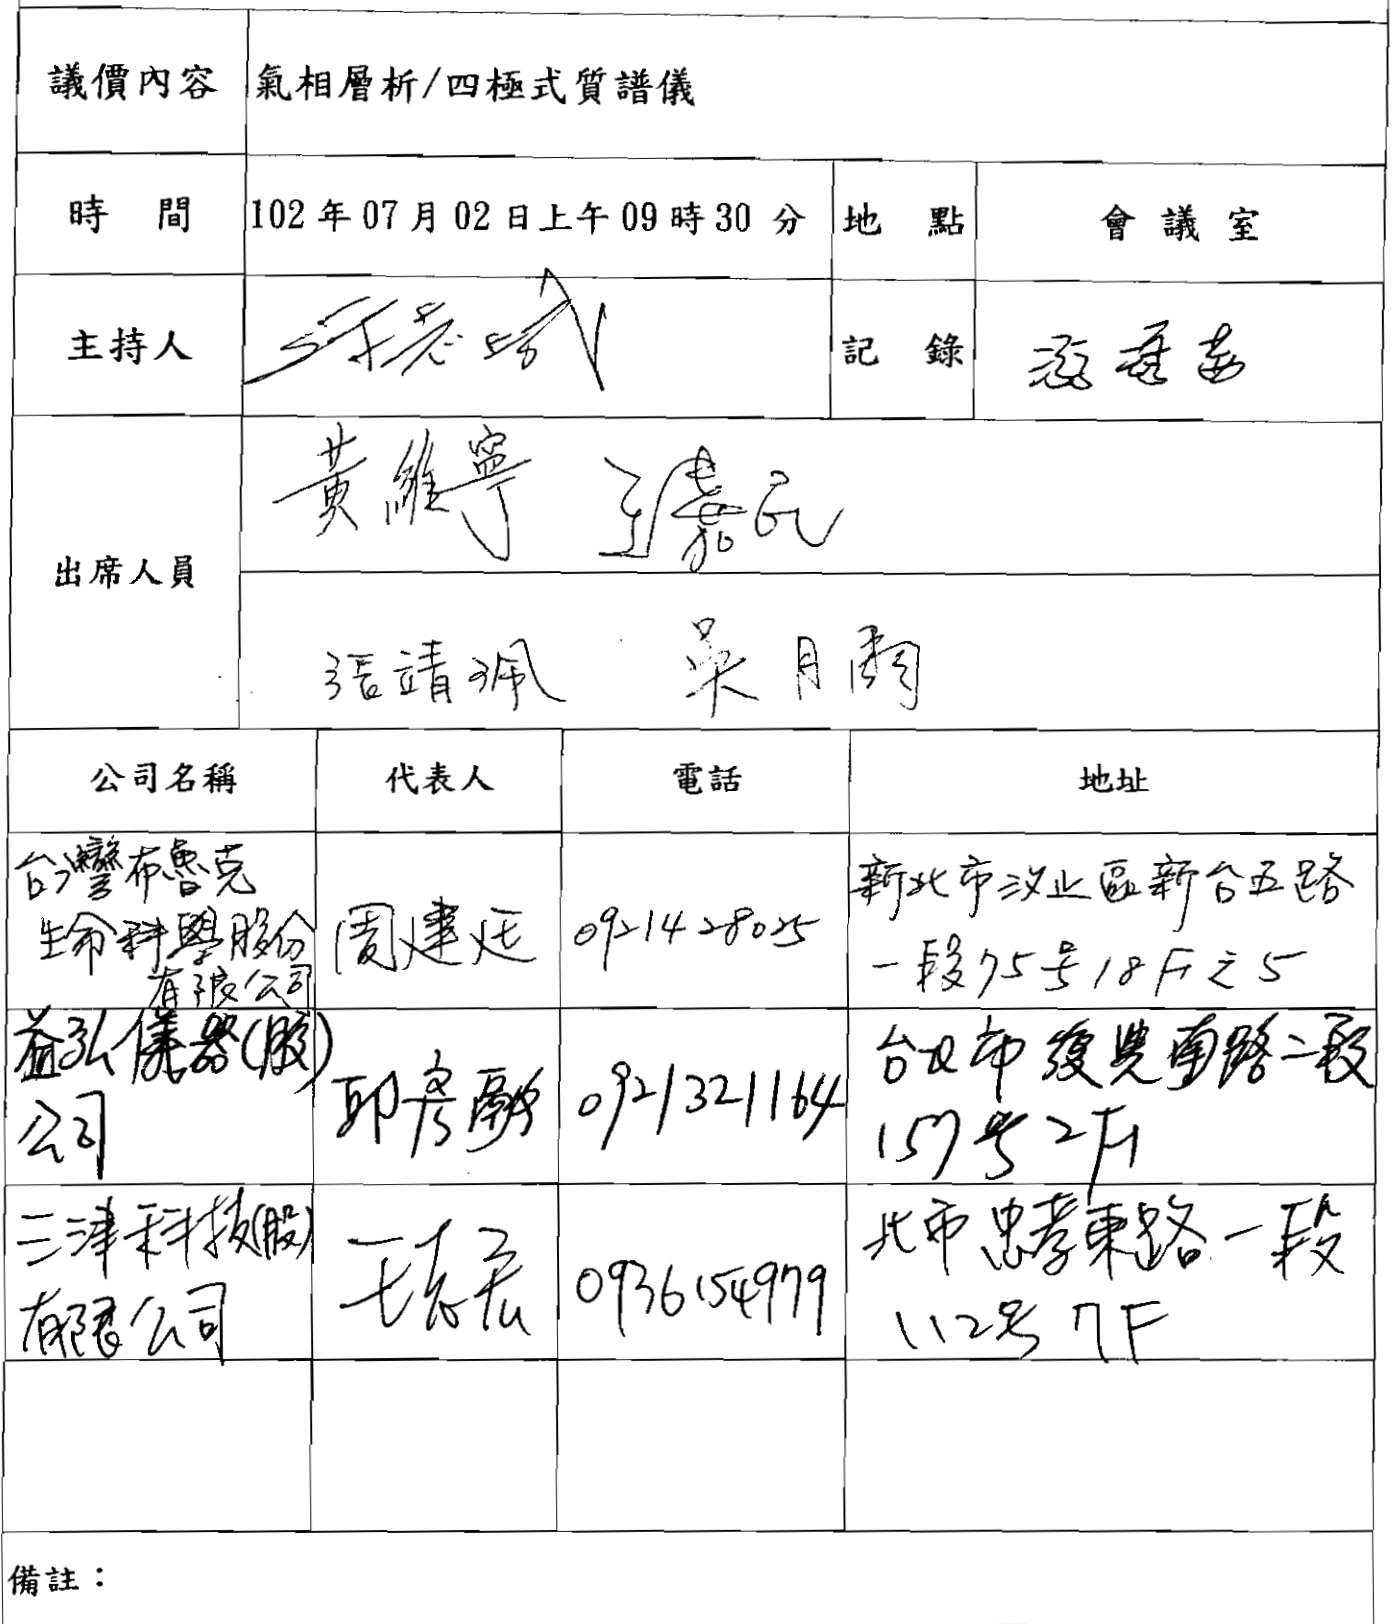 議價內容 氣相層析/四極式質譜儀
時 間 102年07月02日上午09時30分 地 點 會議室
主持人 記 錄
出席人員
黃維寧 王嘉民
張靖珮 吳月霞
公司名稱 代表人 電話 地址
台灣布魯克
生命科學股份
有限公司
周建廷
0921428025
新北市汐止區新台五路
一段75号18F之5
益弘儀器(股)
公司
0921321164
台北市復興南路二段
157号2F
三津科技(股)
有限公司
王志宏
0936154979
北市忠孝東路一段
112号7F
備註：